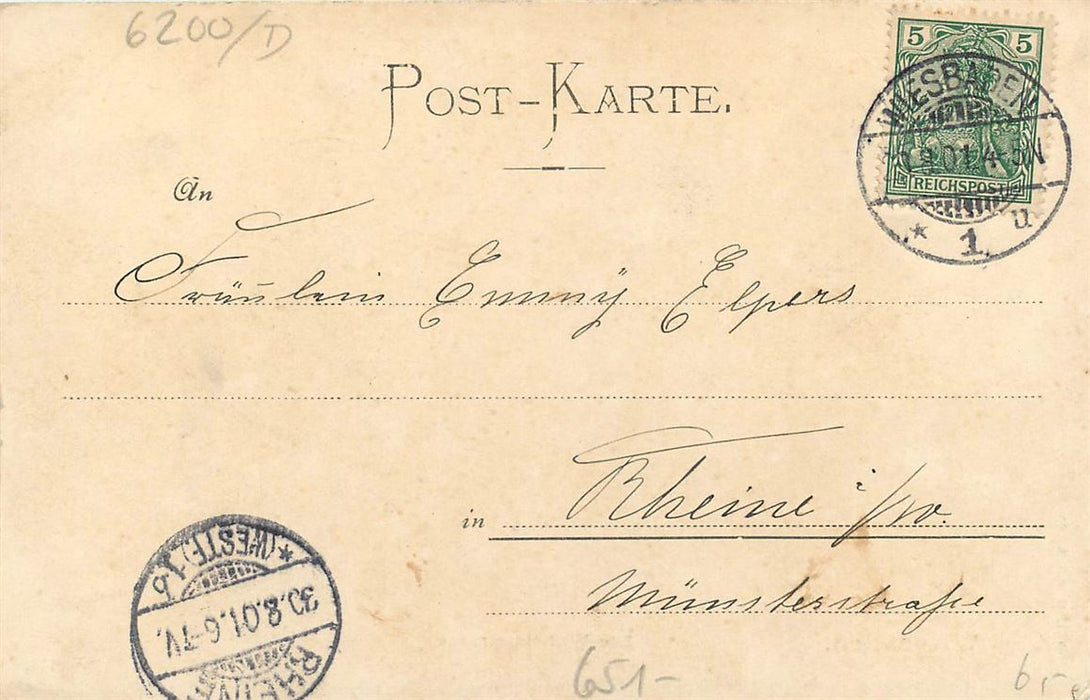 6200/D
POST-KARTE.
5 5
REICHSPOST
WIESBADEN
.8.01.4-5N
* 1 u
An
Fräulein Emmÿ Elpers
in Rheine i/W.
Münsterstraße
RHEINE
30.8.01.6-7V.
* (WESTF.) 1 b
651-